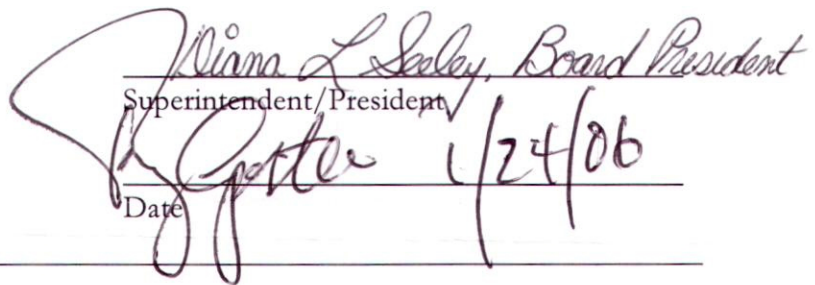 Diana L Seeley, Board President
Superintendent/President
1/24/06
Date